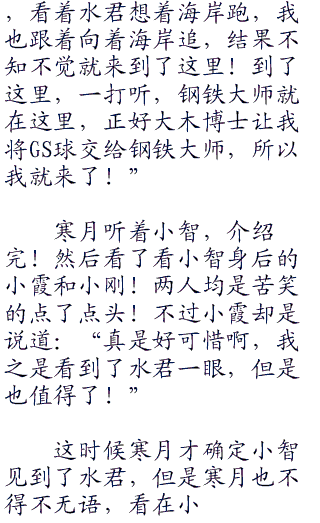 ，看着水君想着海岸跑，我
也跟着向着海岸追，结果不
知不觉就来到了这里！到了
这里，一打听，钢铁大师就
在这里，正好大木博士让我
将GS球交给钢铁大师，所以
我就来了！”
寒月听着小智，介绍
完！然后看了看小智身后的
小霞和小刚！两人均是苦笑
的点了点头！不过小霞却是
说道：“真是好可惜啊，我
之是看到了水君一眼，但是
也值得了！”
这时候寒月才确定小智
见到了水君，但是寒月也不
得不无语，看在小